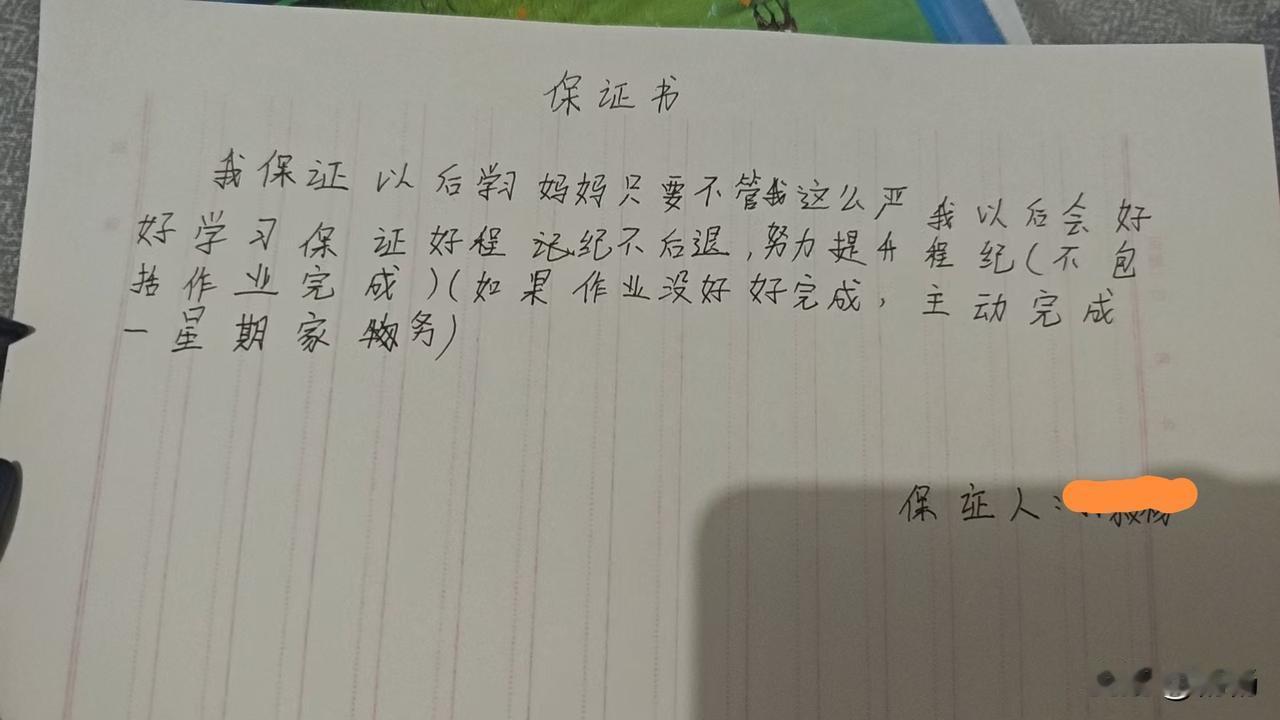 保证书
我保证以后学习妈妈只要不管我这么严我以后会好
好学习保证好程纪不后退,努力提升程纪(不包
括作业完成)(如果作业没好好完成,主动完成
一星期家务)
保证人: